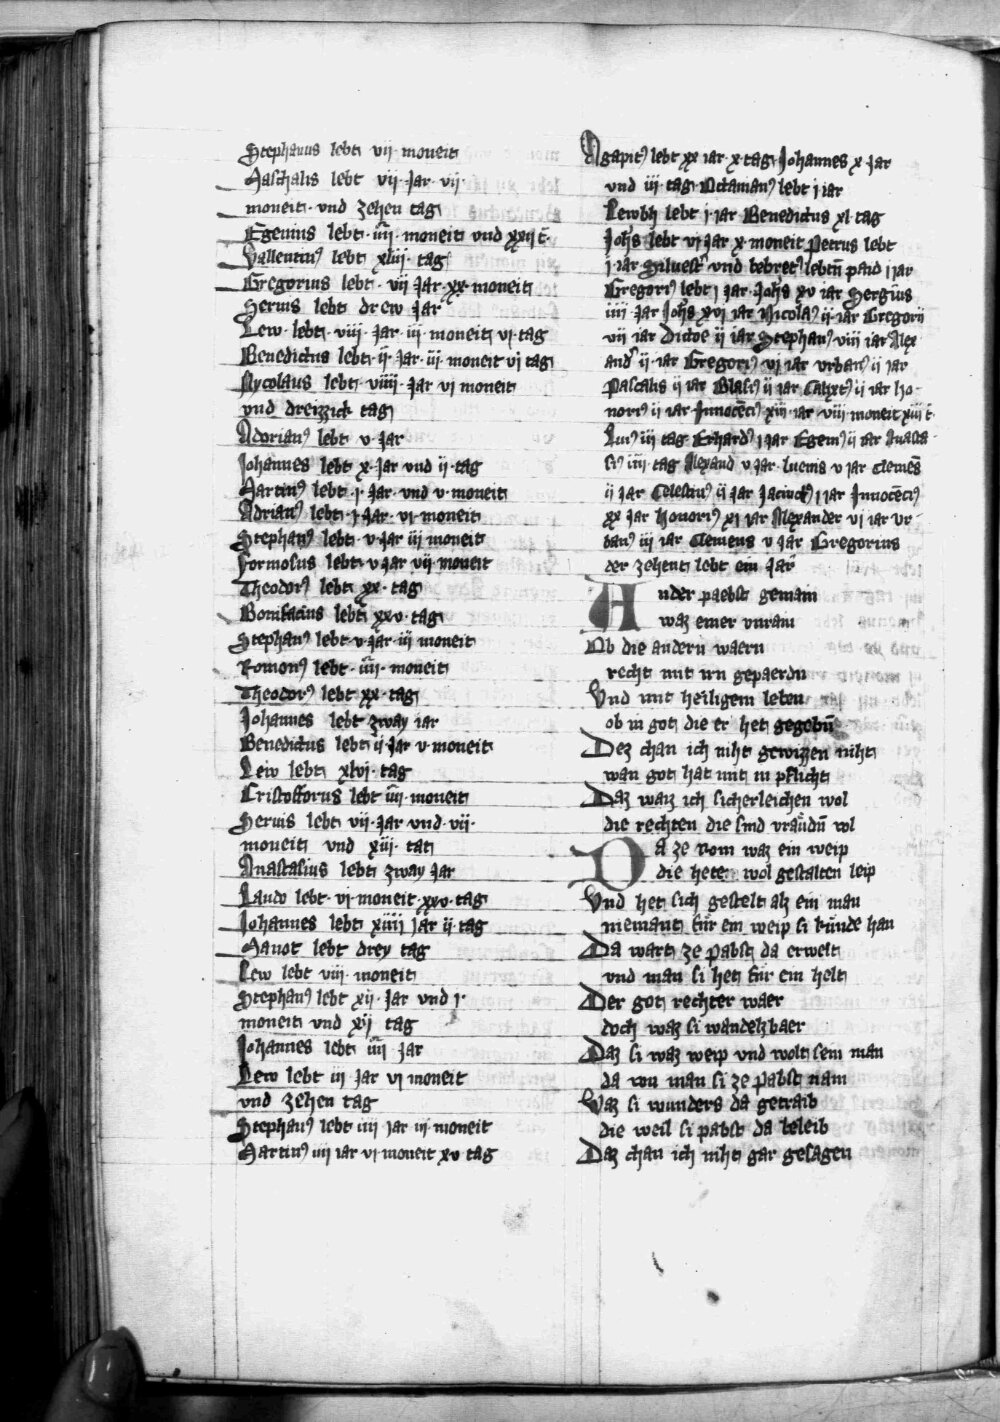 Stephanus lebt vii moneit
Paschalis lebt vii · Jar · vii ·
moneit · vnd zehen tag
Egenius lebt · iiii · moneit vnd xxii t̄·
Vallentin⁹ lebt xliii · tag
Gregorius lebt · vii Jar · xx · moneit
Seruis lebt drew Jar
Lew · lebt · viii · Jar · iii · moneit vi · tag
Benedictus lebt · ii · Jar · iii · moneit vi tag
Nycolaus lebt · viiii · Jar vi moneit
vnd dreizzick tag
Adorian⁹ lebt · v · Jar
Johannes lebt x · Jar vnd ii · tag
Martin⁹ lebt · i · Jar · vnd v · moneit
Adrian⁹ lebt · i · Jar · vi · moneit
Stephan⁹ lebt · v · Jar iii moneit
Formosus lebt · v Jar vii moneit
Theodor⁹ lebt xx · tag
Bonifacius lebt xxv · tag
Stephan⁹ lebt · v · Jar · iii moneit
Romon⁹ lebt · iiii · moneit
Theodor⁹ lebt xx · tag
Johannes lebt zway iar
Benedictus lebt ii Jar v · moneit
Leiv lebt xlvi · tag
Cristofforus lebt iiii · moneit
Seruis lebt vii · Jar · vnd · vii ·
moneit vnd xiii · tat
Anastasius lebt zway Jar
Laudo lebt · vi · moneit · xxv · tag
Johannes lebt xiiii Jar ii · tag
Mauot lebt drey tag
Lew lebt viii · moneit
Stephan⁹ lebt xii · Jar vnd i ·
moneit vnd xii tag
Johannes lebt iiii Jar
Lew lebt iii Jar vi moneit
vnd zehen tag
Stephan⁹ lebt iiii iar iii · moneit
Martin⁹ iiii iar vi · moneit xv tag
Agapit⁹ lebt xx iar · x · tag Johannes x Jar
vnd iii · tag Octauian⁹ lebt i iar
lebt · i · iar Benedictus xl tag
Joh̄s lebt vi Jar x · moneit Petrus lebt
i · iar Siluest⁹ vnd lebtn̄ paid i iar
Gregori⁹ lebt i Jar · Joh̄s xv iar Sergius
iiii · Jar Joh̄s xvi iar Nicola⁹ ii · iar Gregorii
vii iar ii iar Stephan⁹ viii iar Alex
and⁹ ii · iar Gregori⁹ vi iar vrban⁹ ii iar
Pascalis ii iar Blasi⁹ ii iar Calixt⁹ ii iar ho-
nori⁹ ii iar Innocēci⁹ xiii · iar · viii moneit xiii t̄·
Luci⁹ iii tag Erhard⁹ i Jar Egeni⁹ ii iar Anasta
si⁹ iiii · tag Alexand v Jar · lucius v iar Clemēs
ii Jar Celestin⁹ ii Jar Jacinct⁹ i iar Innocēci⁹
xx Jar Honori⁹ xi iar Alexander vi iar vr
ban⁹ iii iar Clemens v Jar Gregorius
der zehent lebt ein Jar
Ander paebst gemain
waz einer vnrain
Ob die andern waern
recht mit im gepaerdn
Vnd mit heiligem leben
ob in got die er het gegebn̄
Dez chan ich niht gewizzen niht
wan got hat mit in pflicht
Daz waiz ich sicherleichen wol
die rechten die sind vraudn̄ vol
Da ze Rom waz ein weip
die hete wol gestalten leip
Vnd het sich gestelt alz ein man
niemant für ein weip si kunde han
Da wart ze pabst da erwelt
vnd man si het für ein helt
Der got rechter waer
doch waz si wandelbaer
Daz si waz weip vnd wolt sein man
da von man si ze pabst nam
Waz si wunders da getraib
die weil si pabst da beleib
Daz chan ich niht gar gesagen